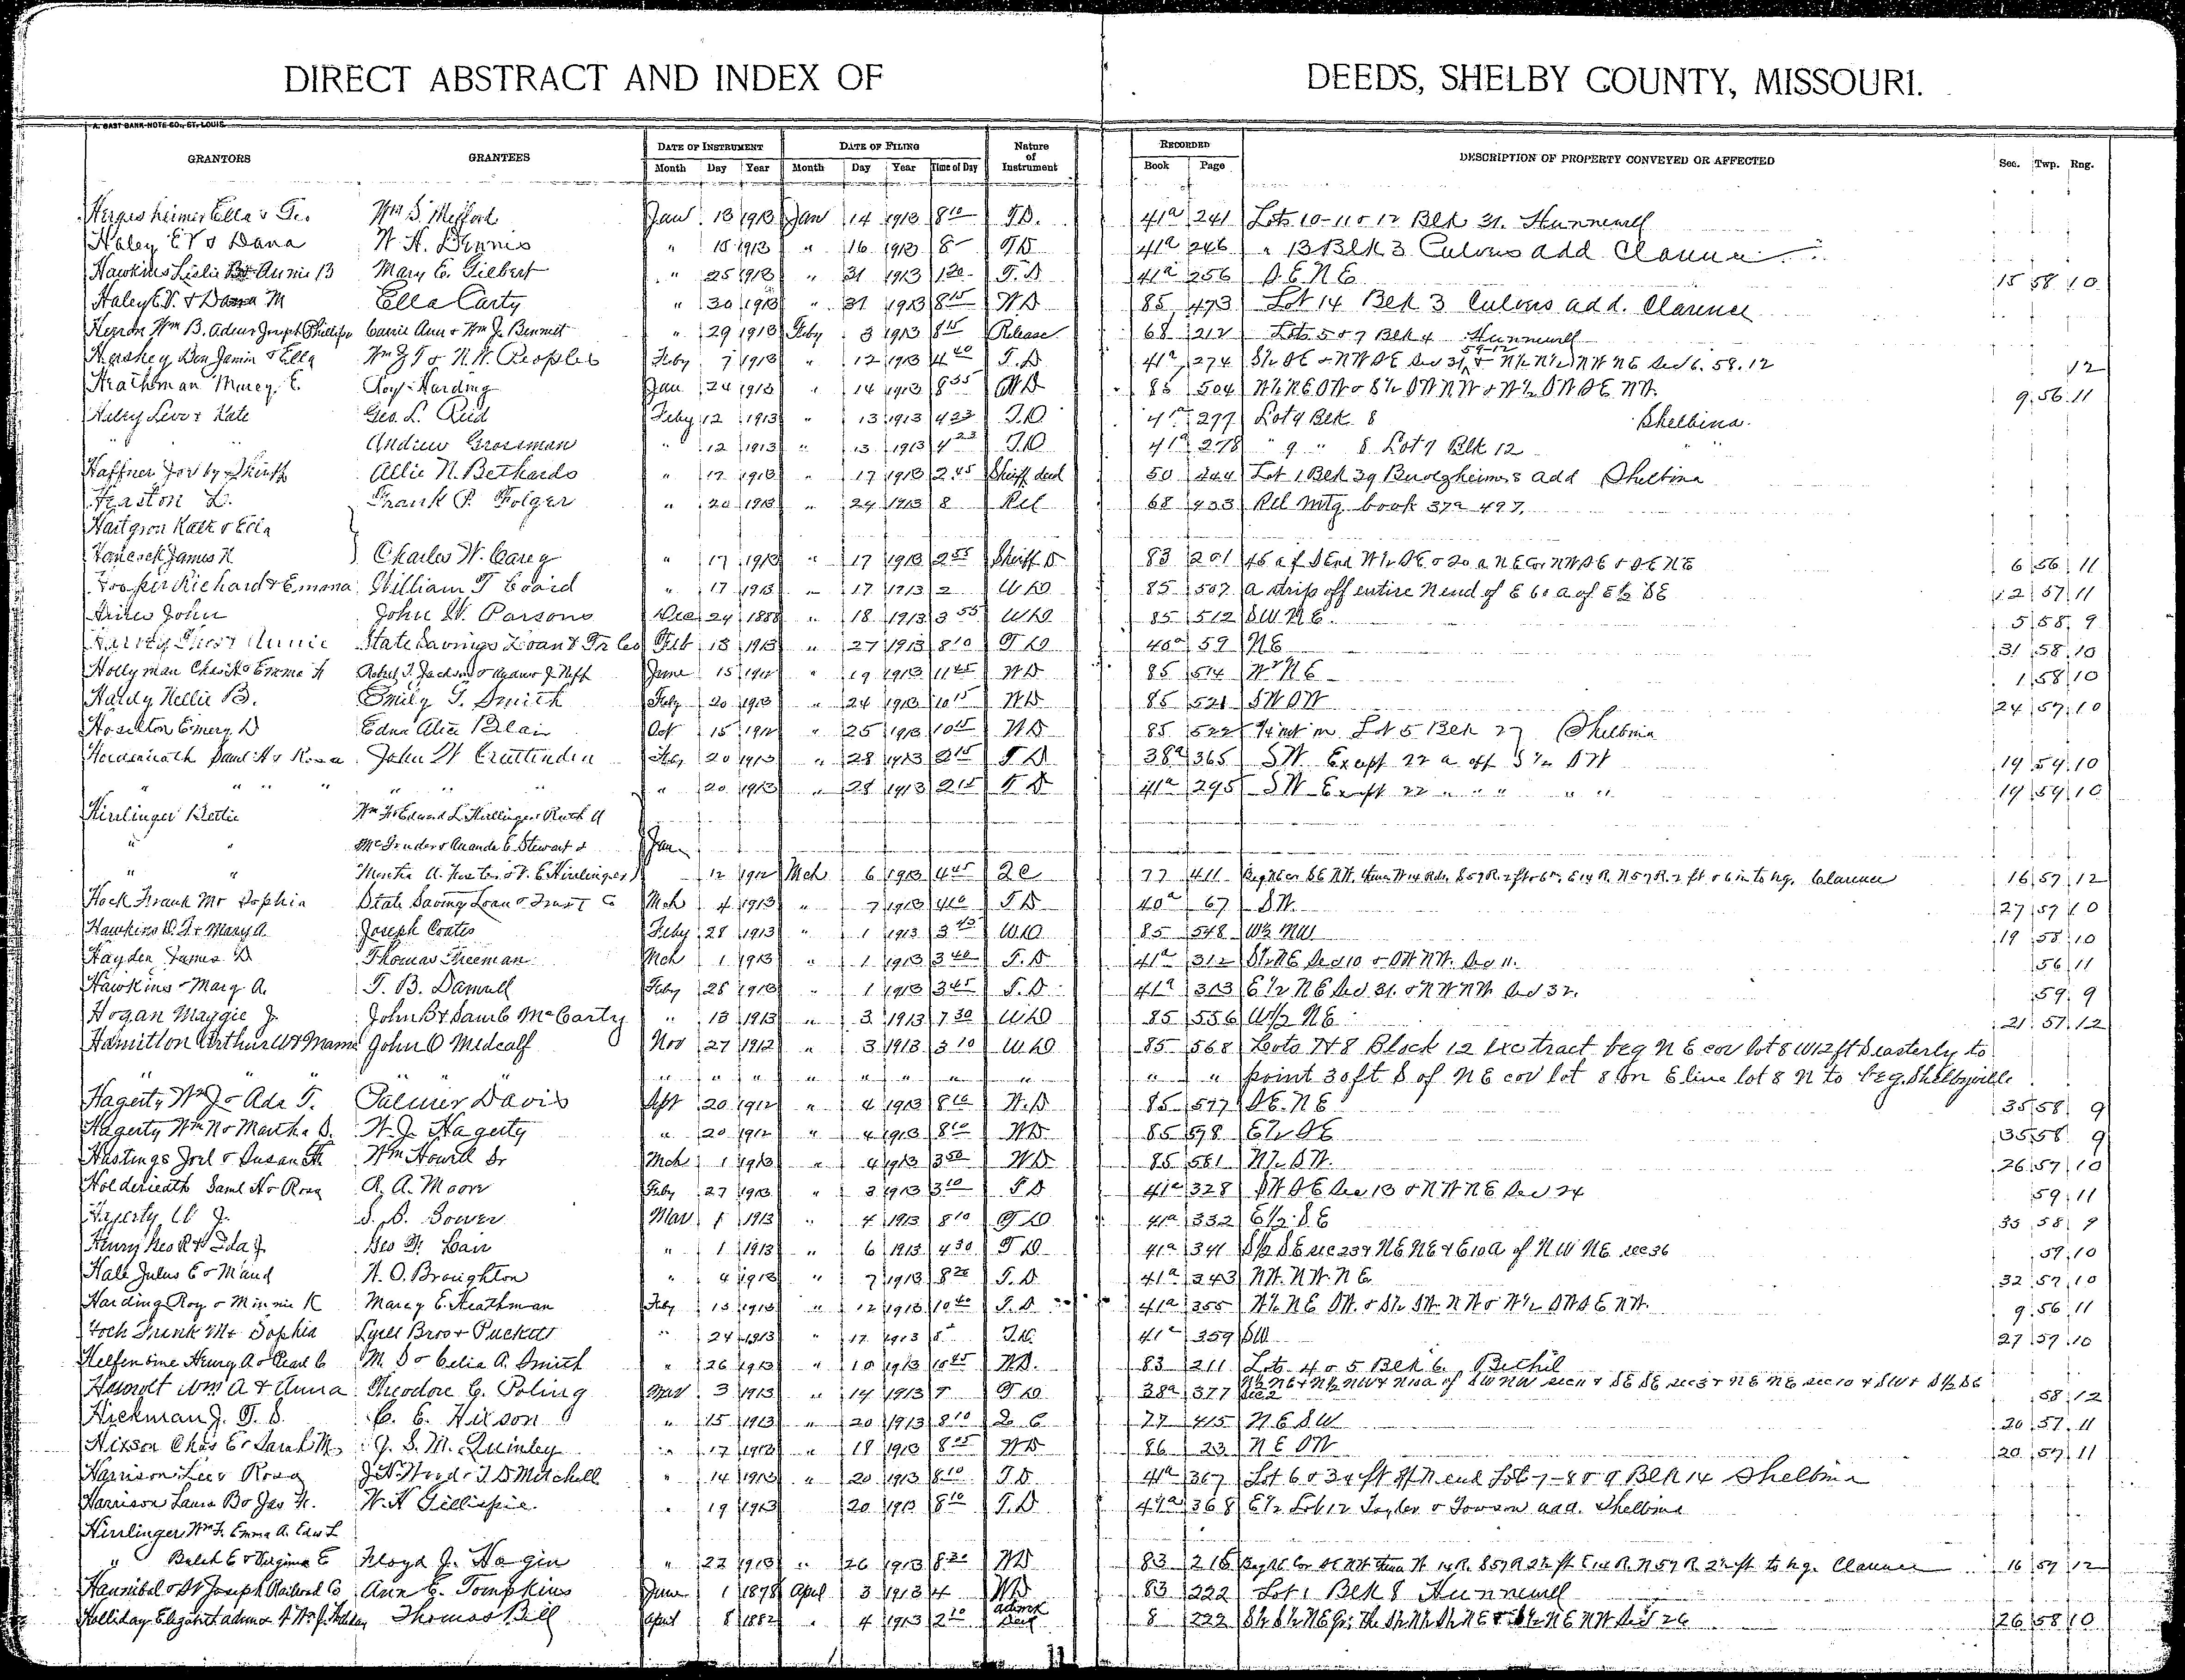 DIRECT ABSTRACT AND INDEX OF DEEDS, SHELBY COUNTY, MISSOURI.
A. GAST BANK-NOTE CO., ST. LOUIS.
GRANTORS GRANTEES DATE OF INSTRUMENT DATE OF FILING Nature of Instrument RECORDED DESCRIPTION OF PROPERTY CONVEYED OR AFFECTED Sec. Twp. Rng.
Month Day Year Month Day Year Time of Day Book Page
Hergesheimer Ella & Geo. Wm S. Mefford Jan 13 1913 Jan 14 1913 8 10 T.D. 41a 241 Lots 10-11 & 12 Blk 31. Hunnewell
Haley E V & Dana W. H. Dennis " 15 1913 " 16 1913 8 TD 41a 246 " 13 Blk 3 Culvers add Clarence
Hawkins Leslie & Annie B Mary E. Gilbert " 25 1913 " 31 1913 1 20 T.D 41a 256 S.E. N.E 15 58 10
Haley E.V. & Dana M Ella Carty " 30 1913 " 31 1913 8 15 WD 85 473 Lot 14 Blk 3 Culvers add. Clarence
Wm B. Joseph Phillips Carrie Ann & Wm J. Bennett " 29 1913 Feby 3 1913 8 15 Release 68 212 Lots 5 & 7 Blk 4 Hunnewell
Hershey Benjamin & Ella & N.W. Peoples Feby 7 1913 " 12 1913 4 40 T.D 41a 274 S½ SE & NW SE Sec 31 59-12 & N½ N½ NW NE Sec 6. 58. 12 12
Heathman Marcy E. Roy Harding Jan 24 1913 " 14 1913 8 55 WD 85 504 W½ NE SW & S½ SW NW & W½ SW SE NW. 9 56 11
Levi & Kate Geo. L. Reid Feby 12 1913 " 13 1913 4 23 T.D 41a 277 Lot 9 Blk 8 Shelbina.
" " Andrew Grossman " 12 1913 " 13 1913 4 23 T.D 41a 278 " 9 " 8 Lot 7 Blk 12 "
Haffner by Sheriff Allie N. Bethards " 17 1913 " 17 1913 2 45 Sheriff deed 50 244 Lot 1 Blk 39 add Shelbina
Heaston L. Frank P. Folger " 20 1913 " 24 1913 8 Rel 68 433 Rel Mtg. book 37a 497.
Hartgron Kate & Ella
Hancock James H. Charles W. Carey " 17 1913 " 17 1913 2 55 Sheriff D 83 201 45 a of S End W½ SE & 20 a NE Cor NW SE & SE NE 6 56 11
Hooper Richard & Emma William T Evaid " 17 1913 " 17 1913 2 WD 85 507 a strip off entire N end of E 60 a of E½ SE 12 57 11
John John W. Parsons Dec 24 1888 " 18 1913 3 55 WD 85 512 SW NE. 5 58 9
Annie State Savings Loan & Tr Co Feb 13 1913 " 27 1913 8 10 TD 40a 59 NE 31 58 10
Hollyman Chas & Emma Robert T. Jackson & J. Neff June 15 1912 " 19 1913 11 45 WD 85 514 NE 1 58 10
Hardy Nellie B. Emily T. Smith Feby 20 1913 " 24 1913 10 15 WD 85 521 SW SW 24 57 10
Hoselton Emery D Edna Alice Blair Oct 15 1912 " 25 1913 10 15 WD 85 522 ¼ int in Lot 5 Blk 27 Shelbina
Holderieath Saml H & Rosa John W Cruttenden Feby 20 1913 " 28 1913 2 15 TD 38a 365 SW Except 22 a off S½ SW 19 59 10
" " " " " " " 20 1913 " 28 1913 2 15 TD 41a 295 SW Except 22 " " " " " 19 59 10
Hirrlinger Bertie Wm F & Edward L Hirrlinger Ruth A
" " McGruder & Amanda E. Stewart & Jan
" " Martha A. & V. E. Hirrlinger 12 1912 Mch 6 1913 4 45 2C 77 411 Beg NE cor SE NW. thence W 14 Rds. S 57 R. 2 ft & 6 in. E 14 R. N 57 R. 2 ft & 6 in to bg. Clarence 16 57 12
Hock Frank M & Sophia State Saving Loan & Trust Co Mch 4 1913 " 7 1913 4 10 TD 40a 67 S.W. 27 57 10
Hawkins D. F. & Mary A. Joseph Coates Feby 28 1913 " 1 1913 3 45 WD 85 548 W½ NW 19 58 10
Hayden James D Thomas Freeman Mch 1 1913 " 1 1913 3 40 T.D 41a 312 S½ NE Sec 10 & SW NW. Sec 11. 56 11
Hawkins Mary A. T. B. Damrell Feby 28 1913 " 1 1913 3 45 T.D 41a 313 E½ NE Sec 31. & NW NW Sec 32. 59 9
Hogan Maggie J. John B & Saml C McCarty " 13 1913 " 3 1913 7 30 WD 85 556 W½ NE 21 57 12
Hamilton Arthur W & Mame John O Medcalf Nov 27 1912 " 3 1913 3 10 WD 85 568 Lots 7 & 8 Block 12 exc tract beg NE cor lot 8 W 12 ft S easterly to
" " " " " " " " " " " " " " point 30 ft S of NE cor lot 8 on E line lot 8 N to beg. Shelbyville
Hagerty Wm J & Ada T. Palmer Davis Sept 20 1912 " 4 1913 8 10 W.D 85 577 SE. NE 35 58 9
Hagerty Wm N & Martha D. W. J. Hagerty " 20 1912 " 4 1913 8 10 WD 85 578 E½ SE 35 58 9
Hastings Joel & Susan Wm Howell Sr Mch 1 1913 " 4 1913 3 50 WD 85 581 N½ SW. 26 57 10
Holderieath Saml H & Rosa R. A. Moore Feby 27 1913 " 3 1913 3 10 TD 41a 328 SW SE Sec 13 & NW NE Sec 24 59 11
Hagerty W J. S. B. Bower Mar 1 1913 " 4 1913 8 10 TD 41a 332 E½ SE 35 58 9
Henry Geo R & Ida J. Geo W. Lair " 1 1913 " 6 1913 4 30 TD 41a 341 S½ SE sec 25 & NE NE & E 10 A of NW NE sec 36 57 10
Hale Julus E & Maud H. O. Broughton " 4 1913 " 7 1913 8 20 T.D. 41a 343 NW. NW. NE. 32 57 10
Harding Roy & Minnie K Marcy E. Heathman Feby 15 1913 " 12 1913 10 40 T.D. 41a 355 W½ NE SW. & S½ SW. NW & W½ SW SE NW. 9 56 11
Hock Frank M & Sophia Lyell Bros & Puckett " 24 1913 " 17 1913 T.D. 41a 359 SW 27 57 10
Helfenbine Henry A & Pearl C M. D & Celia A. Smith " 26 1913 " 10 1913 10 45 WD. 83 211 Lots 4 & 5 Blk 6. Bethel
Wm A & Anna Theodore G. Poling Mar 3 1913 " 14 1913 TD 38a 377 N½ NE & N½ NW & N 10 a of SW NW sec 11 & SE SE sec 3 & NE NE sec 10 & SW & S½ SE sec 2 58 12
Hickman J. T. S. C. E. Hixson " 15 1913 " 20 1913 8 10 2 C 77 415 NE SW 20 57 11
Hixson Chas E & Sarah M. J. S. M. Quinley " 17 1913 " 18 1913 8 25 WD 86 23 NE SW 20 57 11
Harrison Lee & Rosa J N Wood & T. D Mitchell " 14 1913 " 20 1913 8 10 T.D. 41a 367 Lot 6 & 34 ft off N end Lot 7-8 & 9 Blk 14 Shelbina
Harrison Laura B & Jas H. W. H Gillispie " 19 1913 20 1913 8 10 T.D 41a 368 E½ Lot 12 Taylor & Towson add. Shelbina
Hirrlinger Wm F. Emma A. Edw L
" Balch E & Virginia E Floyd J. Hagin " 22 1913 " 26 1913 8 30 WD 83 216 Beg NE Cor SE NW thence W 14 R. S 57 R 2½ ft E 14 R. N 57 R. 2½ ft to bg. Clarence 16 57 12
Hannibal & St Joseph Railroad Co Ann E. Tompkins June 1 1878 April 3 1913 4 WD 83 222 Lot 1 Blk 8 Hunnewell
Holliday Elizabeth admx of Wm J. Holliday Thomas Bell April 8 1882 " 4 1913 2 10 Deed 8 222 S½ NE NE NW Sec 26 26 58 10